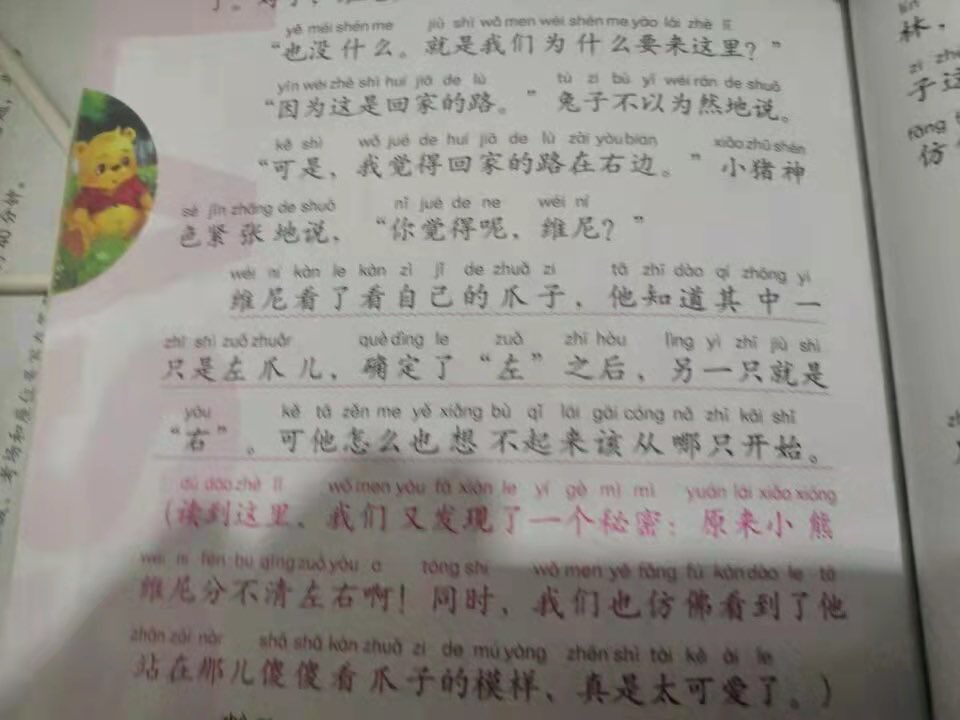 yě méi shén me jiù shì wǒ men wèi shén me yào lái zhè lǐ
“也没什么。就是我们为什么要来这里？”
yīn wèi zhè shì huí jiā de lù tù zi bù yǐ wéi rán de shuō
“因为这是回家的路。”兔子不以为然地说。
kě shì wǒ jué de huí jiā de lù zài yòu bian xiǎo zhū shén
“可是，我觉得回家的路在右边。”小猪神
sè jǐn zhāng de shuō nǐ jué de ne wéi ní
色紧张地说，“你觉得呢，维尼？”
wéi ní kàn le kàn zì jǐ de zhuǎ zi tā zhī dào qí zhōng yì
维尼看了看自己的爪子，他知道其中一
zhī shì zuǒ zhuǎr què dìng le zuǒ zhī hòu lìng yì zhī jiù shì
只是左爪儿，确定了“左”之后，另一只就是
yòu kě tā zěn me yě xiǎng bù qǐ lái gāi cóng nǎ zhī kāi shǐ
“右”。可他怎么也想不起来该从哪只开始。
dú dào zhè lǐ wǒ men yòu fā xiàn le yí gè mì mì yuán lái xiǎo xióng
（读到这里，我们又发现了一个秘密：原来小熊
wéi ní fēn bu qīng zuǒ yòu a tóng shí wǒ men yě fǎng fú kàn dào le tā
维尼分不清左右啊！同时，我们也仿佛看到了他
zhàn zài nàr shǎ shǎ kàn zhuǎ zi de mú yàng zhēn shì tài kě ài le
站在那儿傻傻看爪子的模样，真是太可爱了。）
lín
林，
zi zhè
子这
fǎng
仿